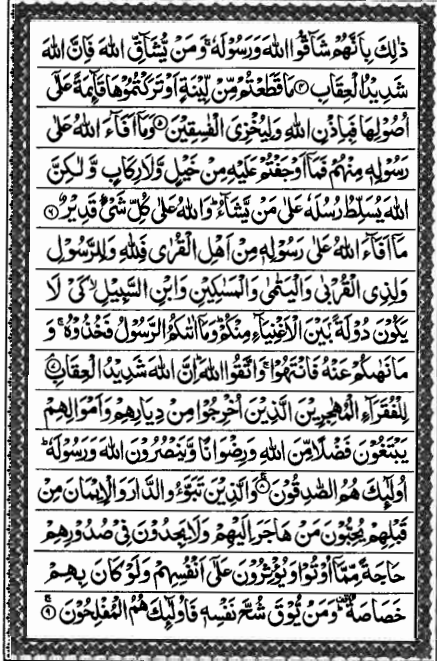 ذٰلِكَ بِاَنَّهُمْ شَآقُّوا اللّٰهَ وَرَسُوْلَهٗ ۚ وَمَنْ يُّشَآقِّ اللّٰهَ فَاِنَّ اللّٰهَ
شَدِيْدُ الْعِقَابِ ۝۴ مَا قَطَعْتُمْ مِّنْ لِّيْنَةٍ اَوْ تَرَكْتُمُوْهَا قَآئِمَةً عَلٰٓى
اُصُوْلِهَا فَبِاِذْنِ اللّٰهِ وَلِيُخْزِىَ الْفٰسِقِيْنَ ۝۵ وَمَآ اَفَآءَ اللّٰهُ عَلٰى
رَسُوْلِهٖ مِنْهُمْ فَمَآ اَوْجَفْتُمْ عَلَيْهِ مِنْ خَيْلٍ وَّلَا رِكَابٍ وَّلٰكِنَّ
اللّٰهَ يُسَلِّطُ رُسُلَهٗ عَلٰى مَنْ يَّشَآءُ ؕ وَاللّٰهُ عَلٰى كُلِّ شَىْءٍ قَدِيْرٌ ۝۶
مَآ اَفَآءَ اللّٰهُ عَلٰى رَسُوْلِهٖ مِنْ اَهْلِ الْقُرٰى فَلِلّٰهِ وَلِلرَّسُوْلِ
وَلِذِى الْقُرْبٰى وَالْيَتٰمٰى وَالْمَسٰكِيْنِ وَابْنِ السَّبِيْلِ ۙ كَىْ لَا
يَكُوْنَ دُوْلَةًۢ بَيْنَ الْاَغْنِيَآءِ مِنْكُمْ ؕ وَمَآ اٰتٰىكُمُ الرَّسُوْلُ فَخُذُوْهُ ۚ وَ
مَا نَهٰىكُمْ عَنْهُ فَانْتَهُوْا ۚ وَاتَّقُوا اللّٰهَ ؕ اِنَّ اللّٰهَ شَدِيْدُ الْعِقَابِ ۝۷
لِلْفُقَرَآءِ الْمُهٰجِرِيْنَ الَّذِيْنَ اُخْرِجُوْا مِنْ دِيَارِهِمْ وَاَمْوَالِهِمْ
يَبْتَغُوْنَ فَضْلًا مِّنَ اللّٰهِ وَرِضْوَانًا وَّيَنْصُرُوْنَ اللّٰهَ وَرَسُوْلَهٗ ؕ
اُولٰٓئِكَ هُمُ الصّٰدِقُوْنَ ۝۸ وَالَّذِيْنَ تَبَوَّؤُ الدَّارَ وَالْاِيْمَانَ مِنْ
قَبْلِهِمْ يُحِبُّوْنَ مَنْ هَاجَرَ اِلَيْهِمْ وَلَا يَجِدُوْنَ فِىْ صُدُوْرِهِمْ
حَاجَةً مِّمَّآ اُوْتُوْا وَيُؤْثِرُوْنَ عَلٰٓى اَنْفُسِهِمْ وَلَوْ كَانَ بِهِمْ
خَصَاصَةٌ ؕ وَمَنْ يُّوْقَ شُحَّ نَفْسِهٖ فَاُولٰٓئِكَ هُمُ الْمُفْلِحُوْنَ ۝۹